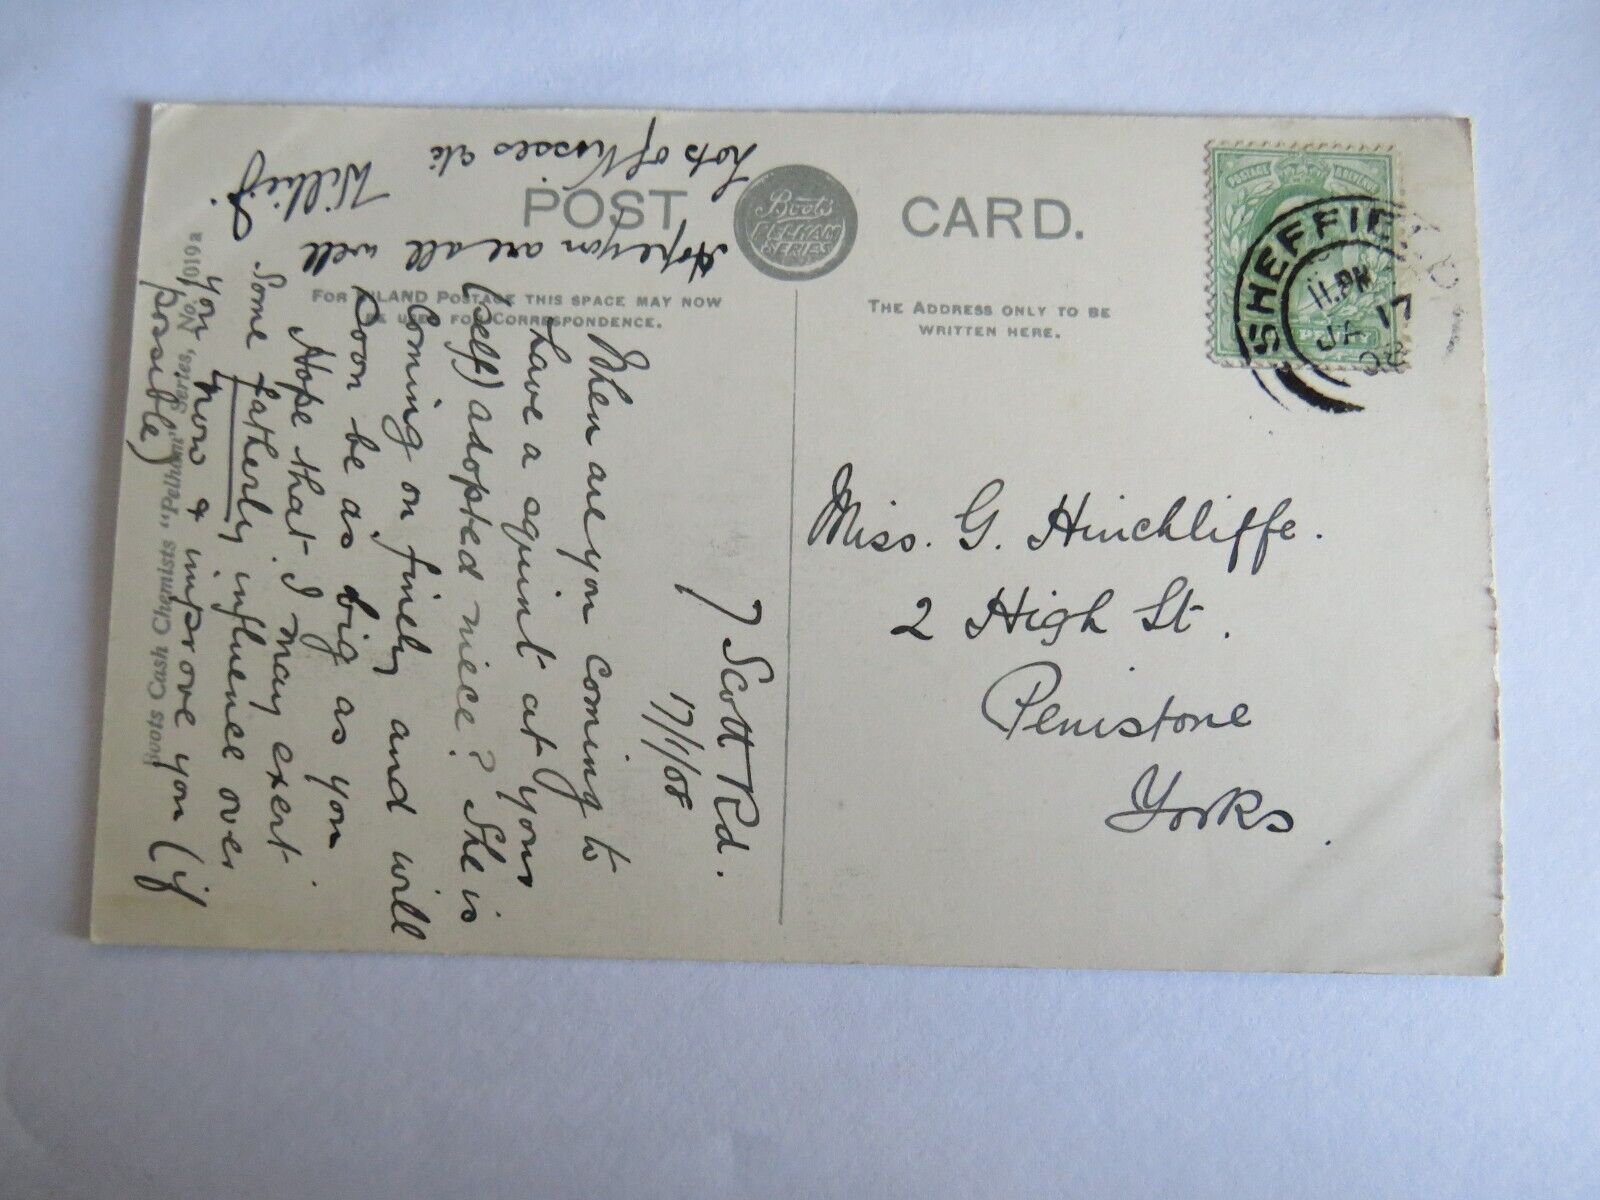 POST CARD.
Boots
PELHAM
SERIES
FOR INLAND POSTAGE THIS SPACE MAY NOW
BE USED FOR CORRESPONDENCE.
THE ADDRESS ONLY TO BE
WRITTEN HERE.
POSTAGE & REVENUE
SHEFFIELD
11.PM
JA 17
08
Miss. G. Hinchliffe.
2 High St.
Penistone
Yorks.
7 Scott Rd.
17/1/08
When are you coming to
have a squint at your
(self) adopted niece? She is
Coming on finely and will
soon be as big as you
Hope that I may exert
some fatherly influence over
you now & improve you (if
possible)
Hope you are all well
Lots of kisses etc
Willie
Boots Cash Chemists "Pelham" Series, No. 1019a